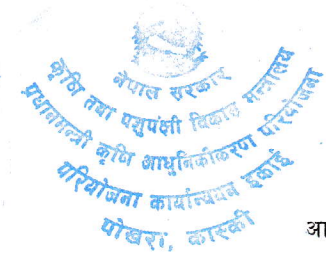 नेपाल सरकार
कृषि तथा पशुपंक्षी विकास मन्त्रालय
प्रधानमन्त्री कृषि आधुनिकीकरण परियोजना
परियोजना कार्यान्वयन इकाई
पोखरा, कास्की
आ